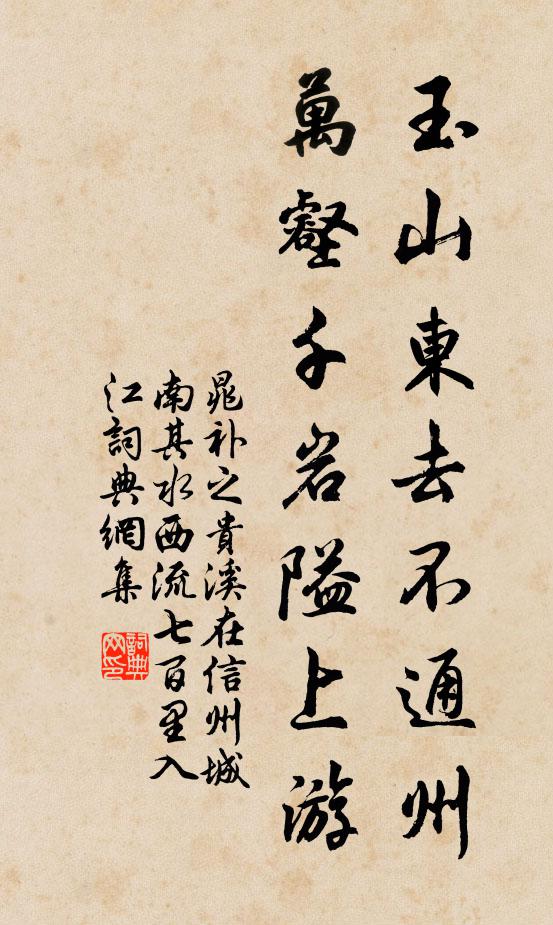 玉山東去不通州
萬壑千岩隘上游
晁补之貴溪在信州城
南其水西流七百里入
江詞典網集
詞典網印